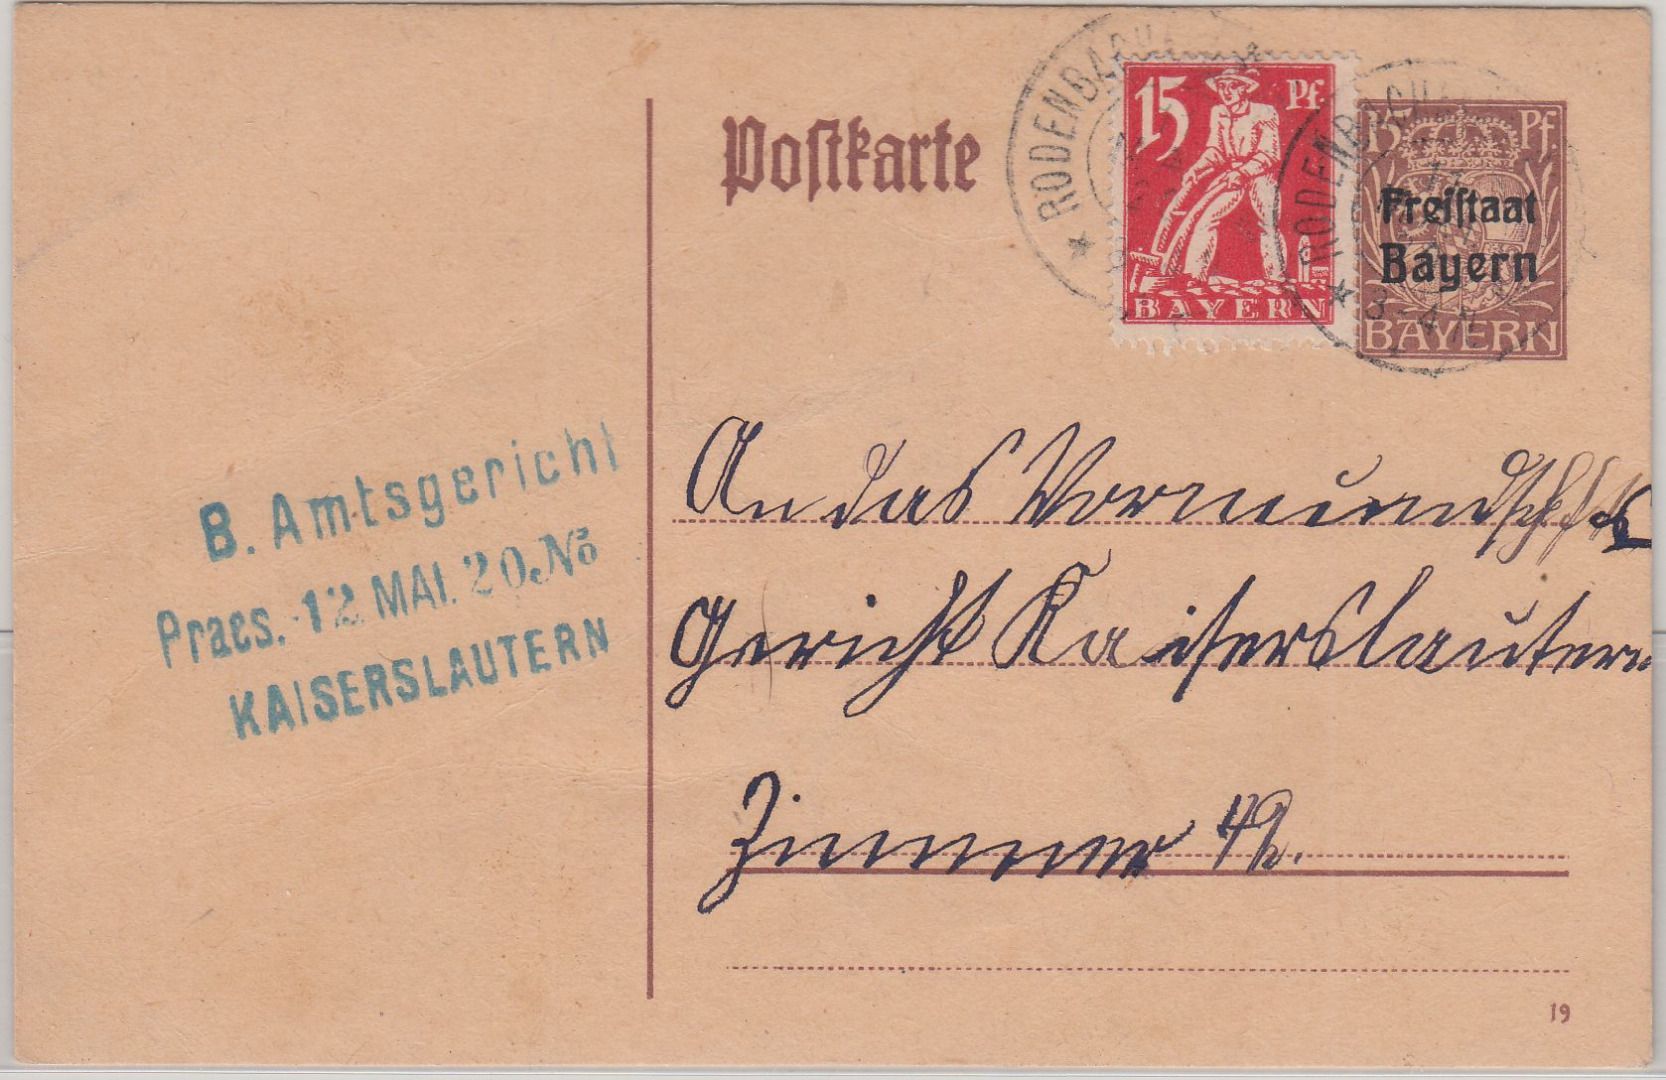 Postkarte
15 Pf
BAYERN
15 Pf.
Freistaat
Bayern
BAYERN
★ RODENBACH
★ RODENBACH
3-4 N
B. Amtsgericht
Praes. 12 MAI. 20 No
KAISERSLAUTERN
An das Vormundschfts
Gericht Kaiserslautern
Zimmer 42.
19